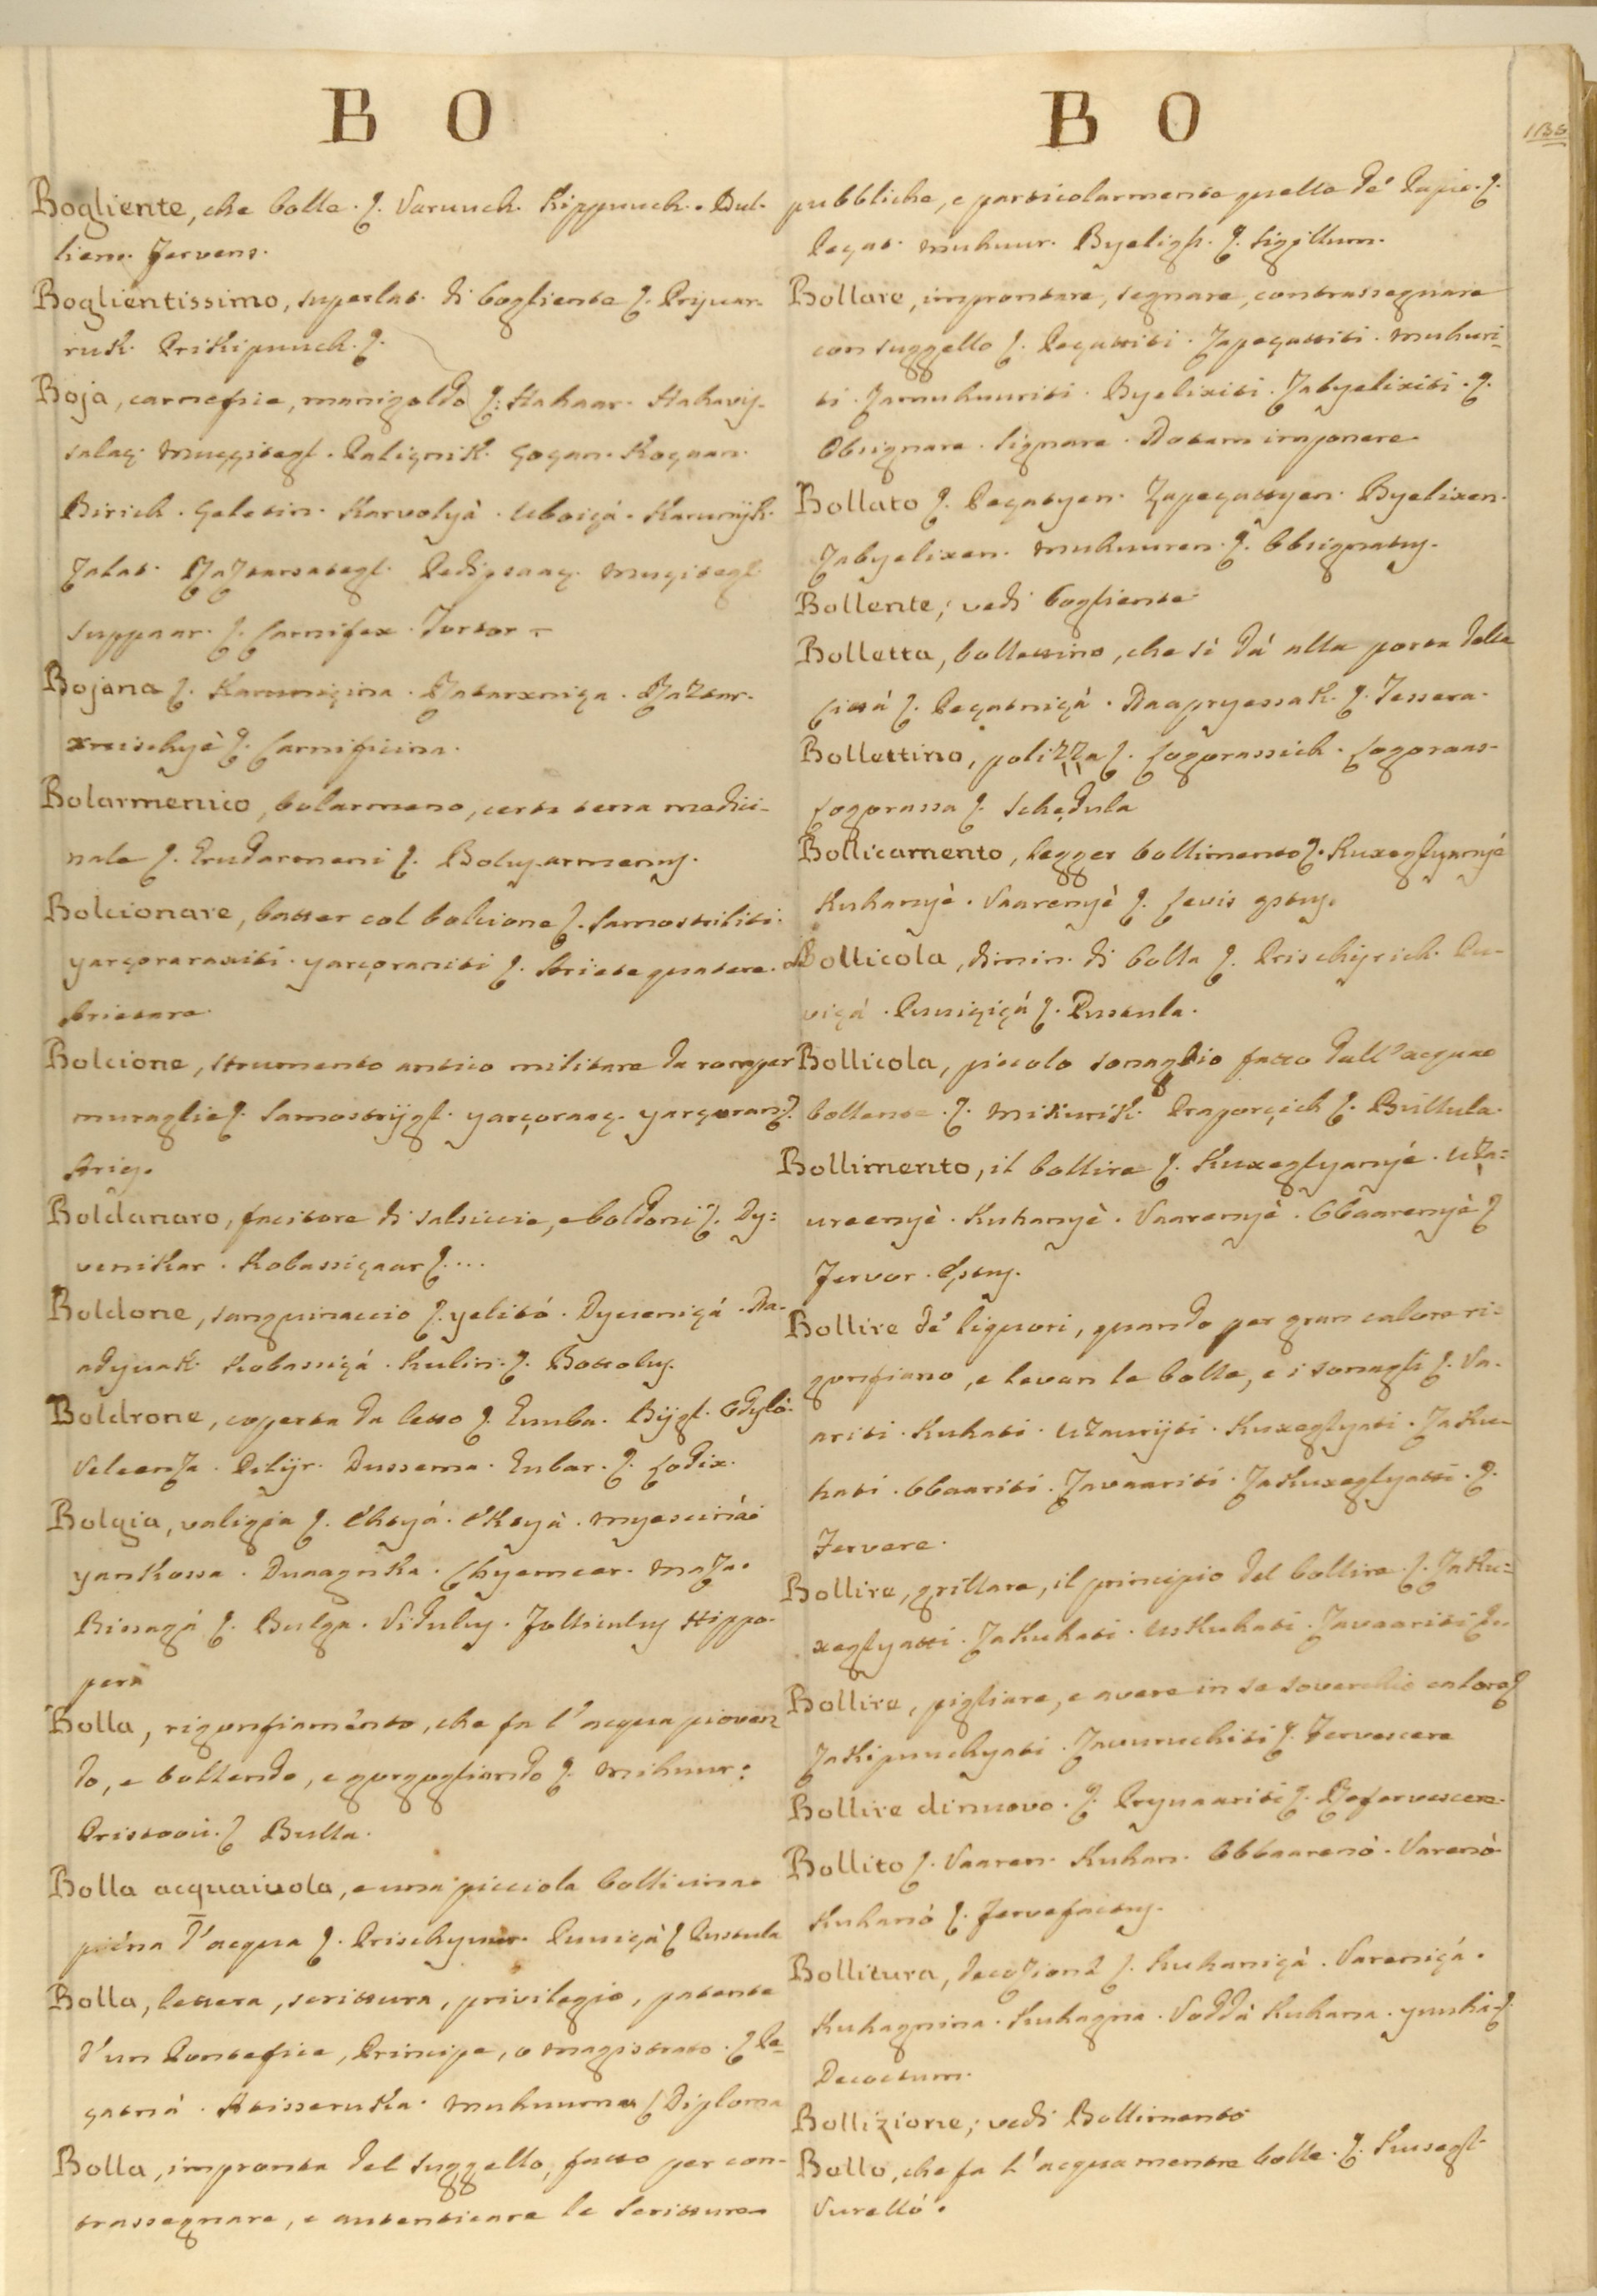 B O
Bogliente, che bolle. ſ. Varuuch. Kippuuch. Bul-
liens. Fervens.
Boglientissimo, superlat. di bogliente ſ. Privar-
ruk. Prikipuuch. ſ.
Boja, carnefice, manigoldo ſ. Hahaar. Hahavy-
salaç. Muççitegl. Paliçnik. Goçan. Koçaan.
Birich. Geletin. Karvolyà. Uboiçà. Karunyk.
Zatat. Muçitegl.
Suppaar. ſ. Carnifex. Tortor.
Bojana ſ. Karuniçina.
ſ. Carnificina.
Bolarmenico, bolarmeno, certa terra medici-
nale ſ. Erudarmeni ſ. Bolus armenus.
Bolcionare, batter col bolcione ſ. Samostriliti.
yarçoraraxiti. yarçoraniti ſ. Ariete quatere.
Arietare.
Bolcione, strumento antico militare da romper
muraglie ſ. Samostrijgl. yarçoraaç. yarçoran ſ.
Aries.
Boldanaro, facitore di salsiccie, e boldoni ſ. Dy-
venikar. Kobassiçaar ſ....
Boldone, sanguinaccio ſ. yelitó. Dyveniçá. Na-
adyvak. Kobassiçá. Kulin. ſ. Botolus.
Boldrone, coperta da letto ſ. Eumba. Bijgl. Odyló.
Veleenza. Pilijr. Dussema. Eubar. ſ. Lodix.
Bolgia, valigia ſ.
yankossa.
Bissagá ſ. Bulga. Vidulus. Folliculus Hippo-
pera
Bolla, rigonfiamento, che fa l'acqua pioven-
do, e bollendo, e gorgogliando ſ. Mihuur:
ſ Bulla.
Bolla acquaivola, e una picciola bollicina
piena d'acqua ſ. Prischyuur. Puuiçà ſ Pustula
Bolla, lettera, scrittura, privilegio, patente
d'un Pontefice, Principe, o Magistrato. ſ Pe-
çatnà. Atisseruka. Muhuurna ſ Diploma
Bolla, impronta del suggello, fatto per con-
trassegnare, e autenticare le scritture
B O
pubbliche, e particolarmente quelle de' Papi. ſ.
Peçat. Muhuur. Byeligh. ſ. Sigillum.
Bollare, improntare, segnare, contrassegnare
con suggello ſ. Peçattiti. Zapeçattiti. Muhuri-
ti. Zamuhuuriti. Byelixiti. Zabyelixiti. ſ.
Obsignare. Signare. Notam imponere.
Bollato ſ. Peçatyen. Zapeçattyen. Byelixen.
Zabyelixen. Muhuuren. ſ. Obsignatus.
Bollente; vedi bogliente
Bolletta, bollettino, che si dà alla porta della
Città ſ. Peçatniçà. Naapryessak. ſ. Tessera.
Bollettino, polizza ſ. Cogorassich. Cogoraas-
Cogorassa ſ. Schedula
Bollicamento, legger bollimento ſ. Kuxeglyanyé
Kuhanyè. Vaarenyè ſ. Levis æstus.
Bollicola, dimin. di bolla ſ. Prischyrich. Pu-
viçá. Puuiçiçá ſ. Pustula.
Bollicola, piccolo sonaglio fatto dall'acqua
bollente. ſ. Mihurik. Praporçich ſ. Bullula.
Bollimento, il bollire ſ. Kuxeglyanyé. Uza-
ureenyè. Kuhanyè. Vaarenyè. Obaarenyè ſ
Fervor. Æstus.
Bollire de' liquori, quando per gran calore ri-
gonfiano, e levan le bolle, e i sonagli ſ. Va-
ariti. Kuhati. Uzavrijti. Kuxeglyati. Zaku-
hati. Obaariti. Zavaariti. Zakuxeglyatti. ſ.
Fervere.
Bollire, grillare, il principio del bollire ſ. Zaku-
xeglyatti. Zakuhati. Uskuhati. Zavaariti
Bollire, pigliare, e avere in se soverchio calore ſ
Zakipuuchyati. Zavuruchiti ſ. Fervescere
Bollire di nuovo. ſ. Pryvaariti ſ. Refervescere.
Bollito ſ. Vaaren. Kuhan. Obbaarenò. Varenò
Kuhanò ſ. Fervefactus.
Bollitura, decozione ſ. Kuhaniçà. Vareniçá.
Kuhagnina. Kuhagna. Voddà Kuhana. yuuhá ſ.
Decoctum.
Bollizione; vedi Bollimento
Bollo, che fa l'acqua mentre bolle. ſ. Kuxegl.
Vurelló.